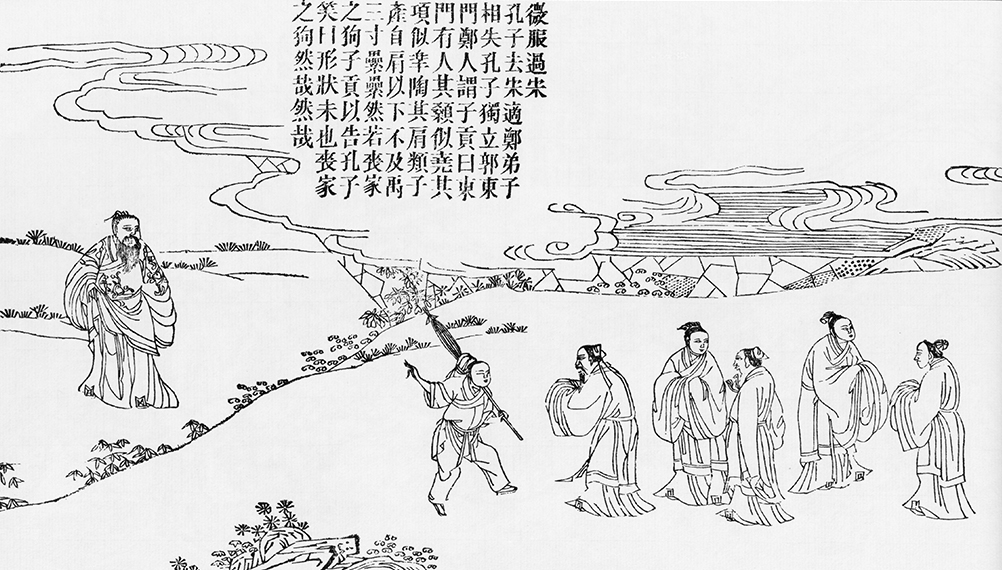 微服過宋
孔子去宋適鄭弟子
相失孔子獨立郭東
門鄭人謂子貢曰東
門有人其顙似堯其
項似皋陶其肩類子
產自肩以下不及禹
三寸纍纍然若喪家
之狗子貢以告孔子
笑曰形狀未也喪家
之狗然哉然哉